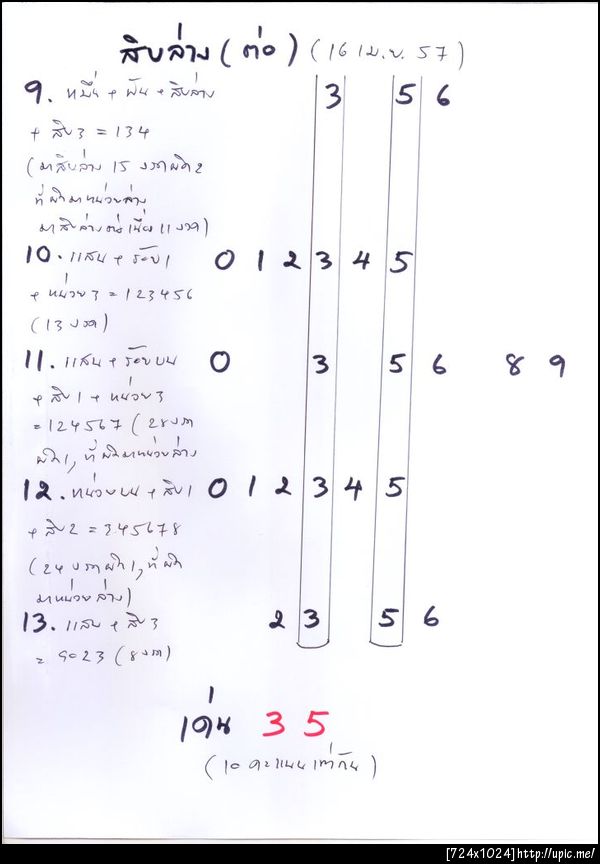 สิบล่าง (ต่อ) (16 เม.ย. 57)
9. หมื่น + พัน + สิบล่าง 3 5 6
+ สิบ 3 = 134
(มาสิบล่าง 15 งวดผิด 2
ที่ผิดมาหน่วยล่าง
มาสิบล่างต่อเนื่อง 11 งวด)
10. แสน + ร้อย 1 0 1 2 3 4 5
+ หน่วย 3 = 123456
(13 งวด)
11. แสน + ร้อยบน 0 3 5 6 8 9
+ สิบ 1 + หน่วย 3
= 124567 (28 งวด
ผิด 1, ที่ผิดมาหน่วยล่าง
12. หน่วยบน + สิบ 1 0 1 2 3 4 5
+ สิบ 2 = 345678
(24 งวดผิด 1, ที่ผิด
มาหน่วยล่าง)
13. แสน + สิบ 3 2 3 5 6
= 9023 (8 งวด)
เด่น 3 5
(10 คะแนนเท่ากัน)
[724x1024]http://upic.me/